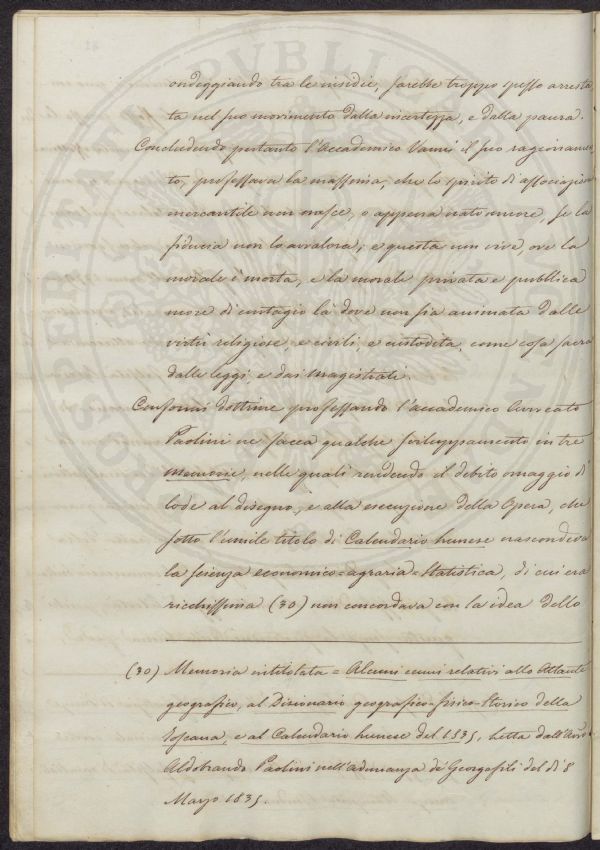 ondeggiando tra le insidie, sarebbe troppo spesso arresta
ta nel suo movimento dalla incertezza, e dalla paura.
Concludendo pertanto l'Accademico Vanni il suo ragioname
to, professava la massima, che lo spirito di associazion
mercantile non nasce, o appena nato muore, se la
fiducia non lo avvalora; e questa non vive, ove la
morale è morta, e la morale privata e pubblica
more di contagio la dove non sia animata dalle
virtù religiose, e civili, e custodita, come cosa sacra
dalle leggi, e dai Magistrati.
Conformi dottrine professando l'accademico Avvocato
Paolini ne facea qualche sviluppamento in tre
Memorie, nelle quali rendendo il debito omaggio di
lode al disegno, e alla esecuzione della Opera, che
sotto l'umile titolo di Calendario lunese nascondeva
la scienza economico=agraria=Statistica, di cui era
ricchissima (30) non concordava con la idea dello
(30) Memoria intitolata = Alcuni cenni relativi allo Atlante
geografico, al Dizionario geografico-fisico-Storico della
Toscana, e al Calendario lunese del 1835, letta dall'Avvo
Aldobrando Paolini nell'adunanza de' Georgofili del dì 8
Marzo 1835.